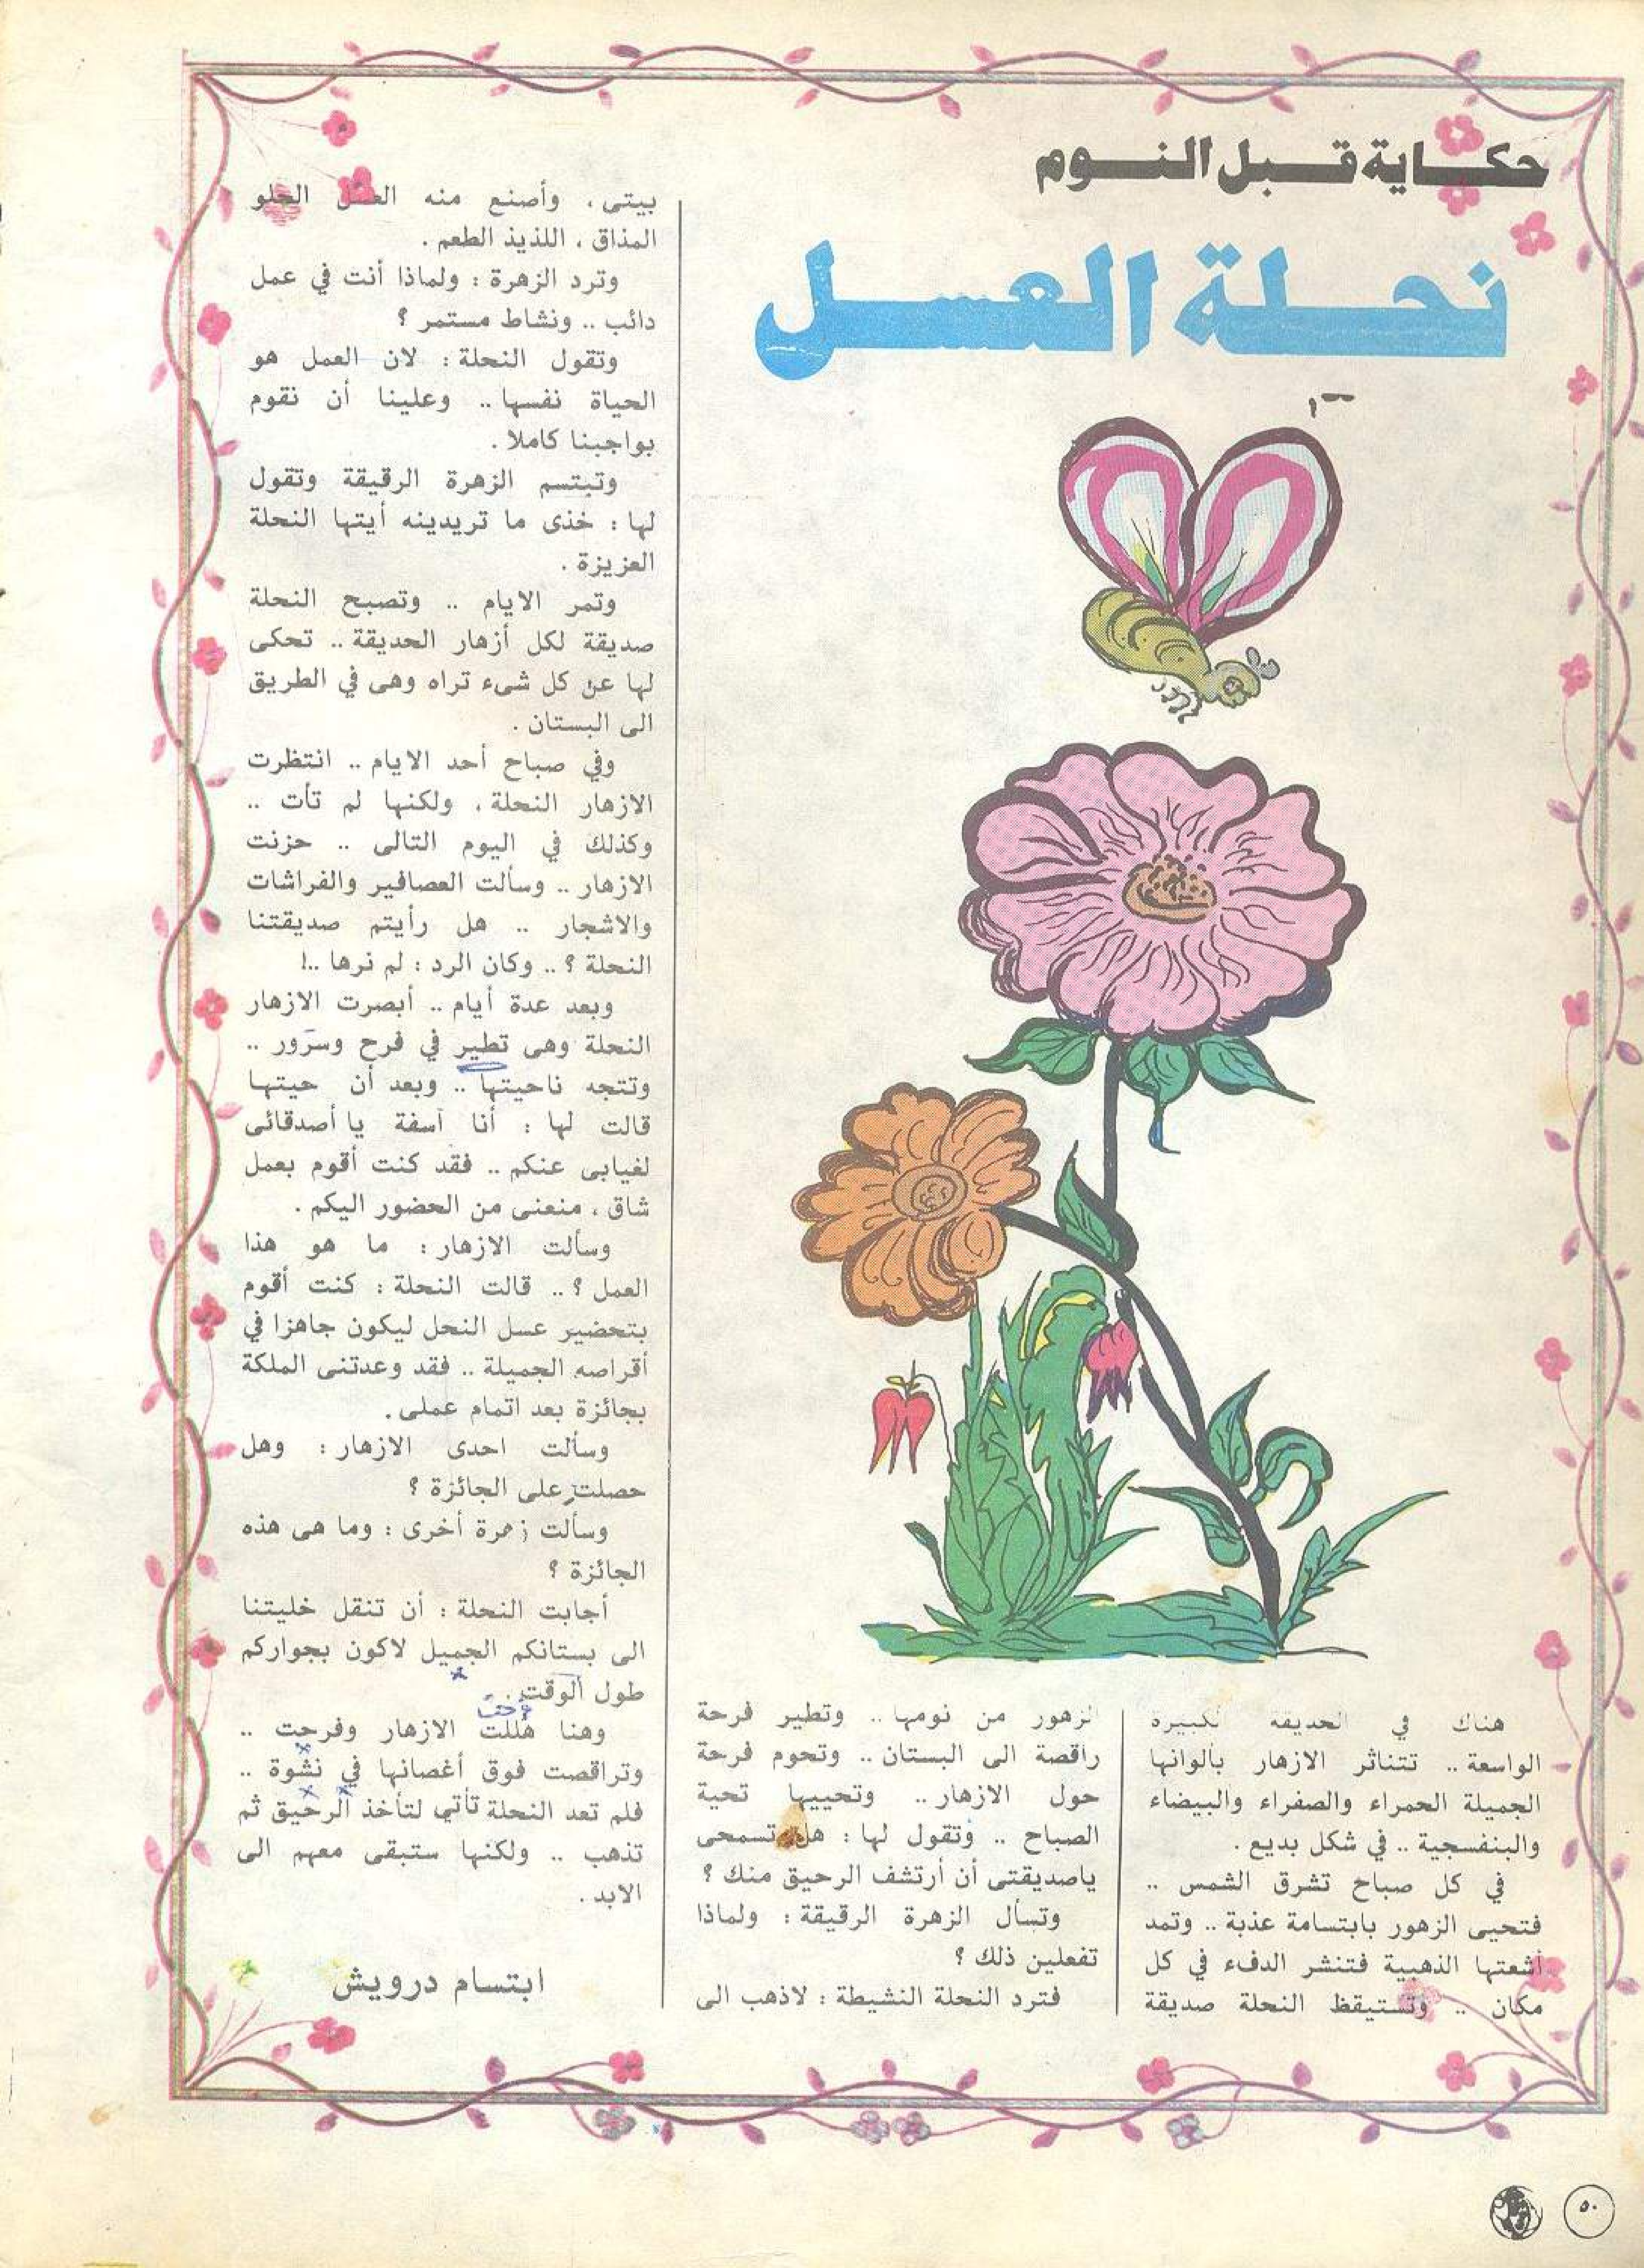 حكاية قبل النوم
نحلة العسل
هناك في الحديقة الكبيرة
الواسعة .. تتناثر الازهار بألوانها
الجميلة الحمراء والصفراء والبيضاء
والبنفسجية .. في شكل بديع .
في كل صباح تشرق الشمس ..
فتحيى الزهور بابتسامة عذبة .. وتمد
أشعتها الذهبية فتنشر الدفء في كل
مكان .. وتستيقظ النحلة صديقة
الزهور من نومها .. وتطير فرحة
راقصة الى البستان .. وتحوم فرحة
حول الازهار .. وتحييها تحية
الصباح .. وتقول لها : هل تسمحى
ياصديقتى أن أرتشف الرحيق منك ؟
وتسأل الزهرة الرقيقة : ولماذا
تفعلين ذلك ؟
فترد النحلة النشيطة : لاذهب الى
بيتى ، وأصنع منه العسل الحلو
المذاق ، اللذيذ الطعم .
وترد الزهرة : ولماذا أنت في عمل
دائب .. ونشاط مستمر ؟
وتقول النحلة : لان العمل هو
الحياة نفسها .. وعلينا أن نقوم
بواجبنا كاملا .
وتبتسم الزهرة الرقيقة وتقول
لها : خذى ما تريدينه أيتها النحلة
العزيزة .
وتمر الايام .. وتصبح النحلة
صديقة لكل أزهار الحديقة .. تحكى
لها عن كل شىء تراه وهى في الطريق
الى البستان .
وفي صباح أحد الايام .. انتظرت
الازهار النحلة ، ولكنها لم تأت ..
وكذلك في اليوم التالى .. حزنت
الازهار .. وسألت العصافير والفراشات
والاشجار .. هل رأيتم صديقتنا
النحلة ؟ .. وكان الرد : لم نرها ..!
وبعد عدة أيام .. أبصرت الازهار
النحلة وهى تطير في فرح وسرور ..
وتتجه ناحيتها .. وبعد أن حيتها
قالت لها : أنا آسفة يا أصدقائى
لغيابى عنكم .. فقد كنت أقوم بعمل
شاق ، منعنى من الحضور اليكم .
وسألت الازهار : ما هو هذا
العمل ؟ .. قالت النحلة : كنت أقوم
بتحضير عسل النحل ليكون جاهزا في
أقراصه الجميلة .. فقد وعدتنى الملكة
بجائزة بعد اتمام عملى .
وسألت احدى الازهار : وهل
حصلت على الجائزة ؟
وسألت زهرة أخرى : وما هى هذه
الجائزة ؟
أجابت النحلة : أن تنقل خليتنا
الى بستانكم الجميل لاكون بجواركم
طول الوقت .
وهنا هللت الازهار وفرحت ..
وتراقصت فوق أغصانها في نشوة ..
فلم تعد النحلة تأتي لتأخذ الرحيق ثم
تذهب .. ولكنها ستبقى معهم الى
الابد .
ابتسام درويش
٥٠